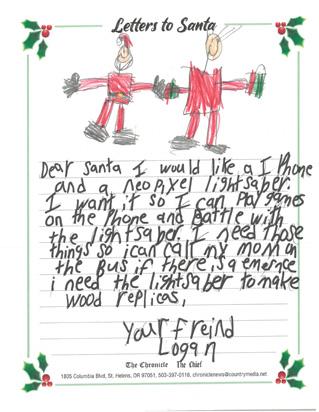 Letters to Santa
Dear Santa I would like a I Phone
and a neopixel lightsaber.
I want it so I can Play games
on the Phone and Battle with
the lightsaber. I need those
things so ican call my mom on
the Bus if there is a emerge
i need the lightsaber to make
wood replicas,
Your freind
Logan
The Chronicle The Chief
1805 Columbia Blvd, St. Helens, OR 97051, 503-397-0116, chroniclenews@countrymedia.net